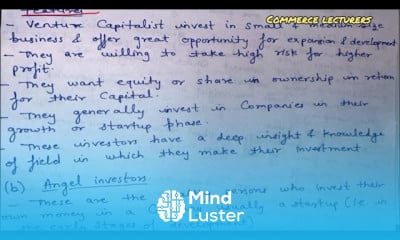 Features
COMMERCE LECTURERS
- Venture Capitalist invest in small & medium size
business & offer great opportunity for expansion & development
- They are willing to take high risk for higher
profit.
- They want equity or share in ownership in return
for their Capital.
- They generally invest in Companies in their
growth or startup phase.
- These investors have a deep insight & knowledge
of field in which they make their investment.
(b) Angel investors
- These are the persons who invest their
own money in a usually a startup (i.e. in
the early stages of development)
Mind
Luster